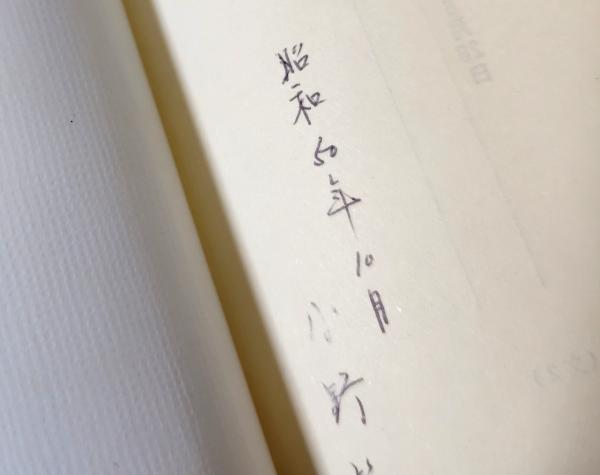 昭和50年10月
小野